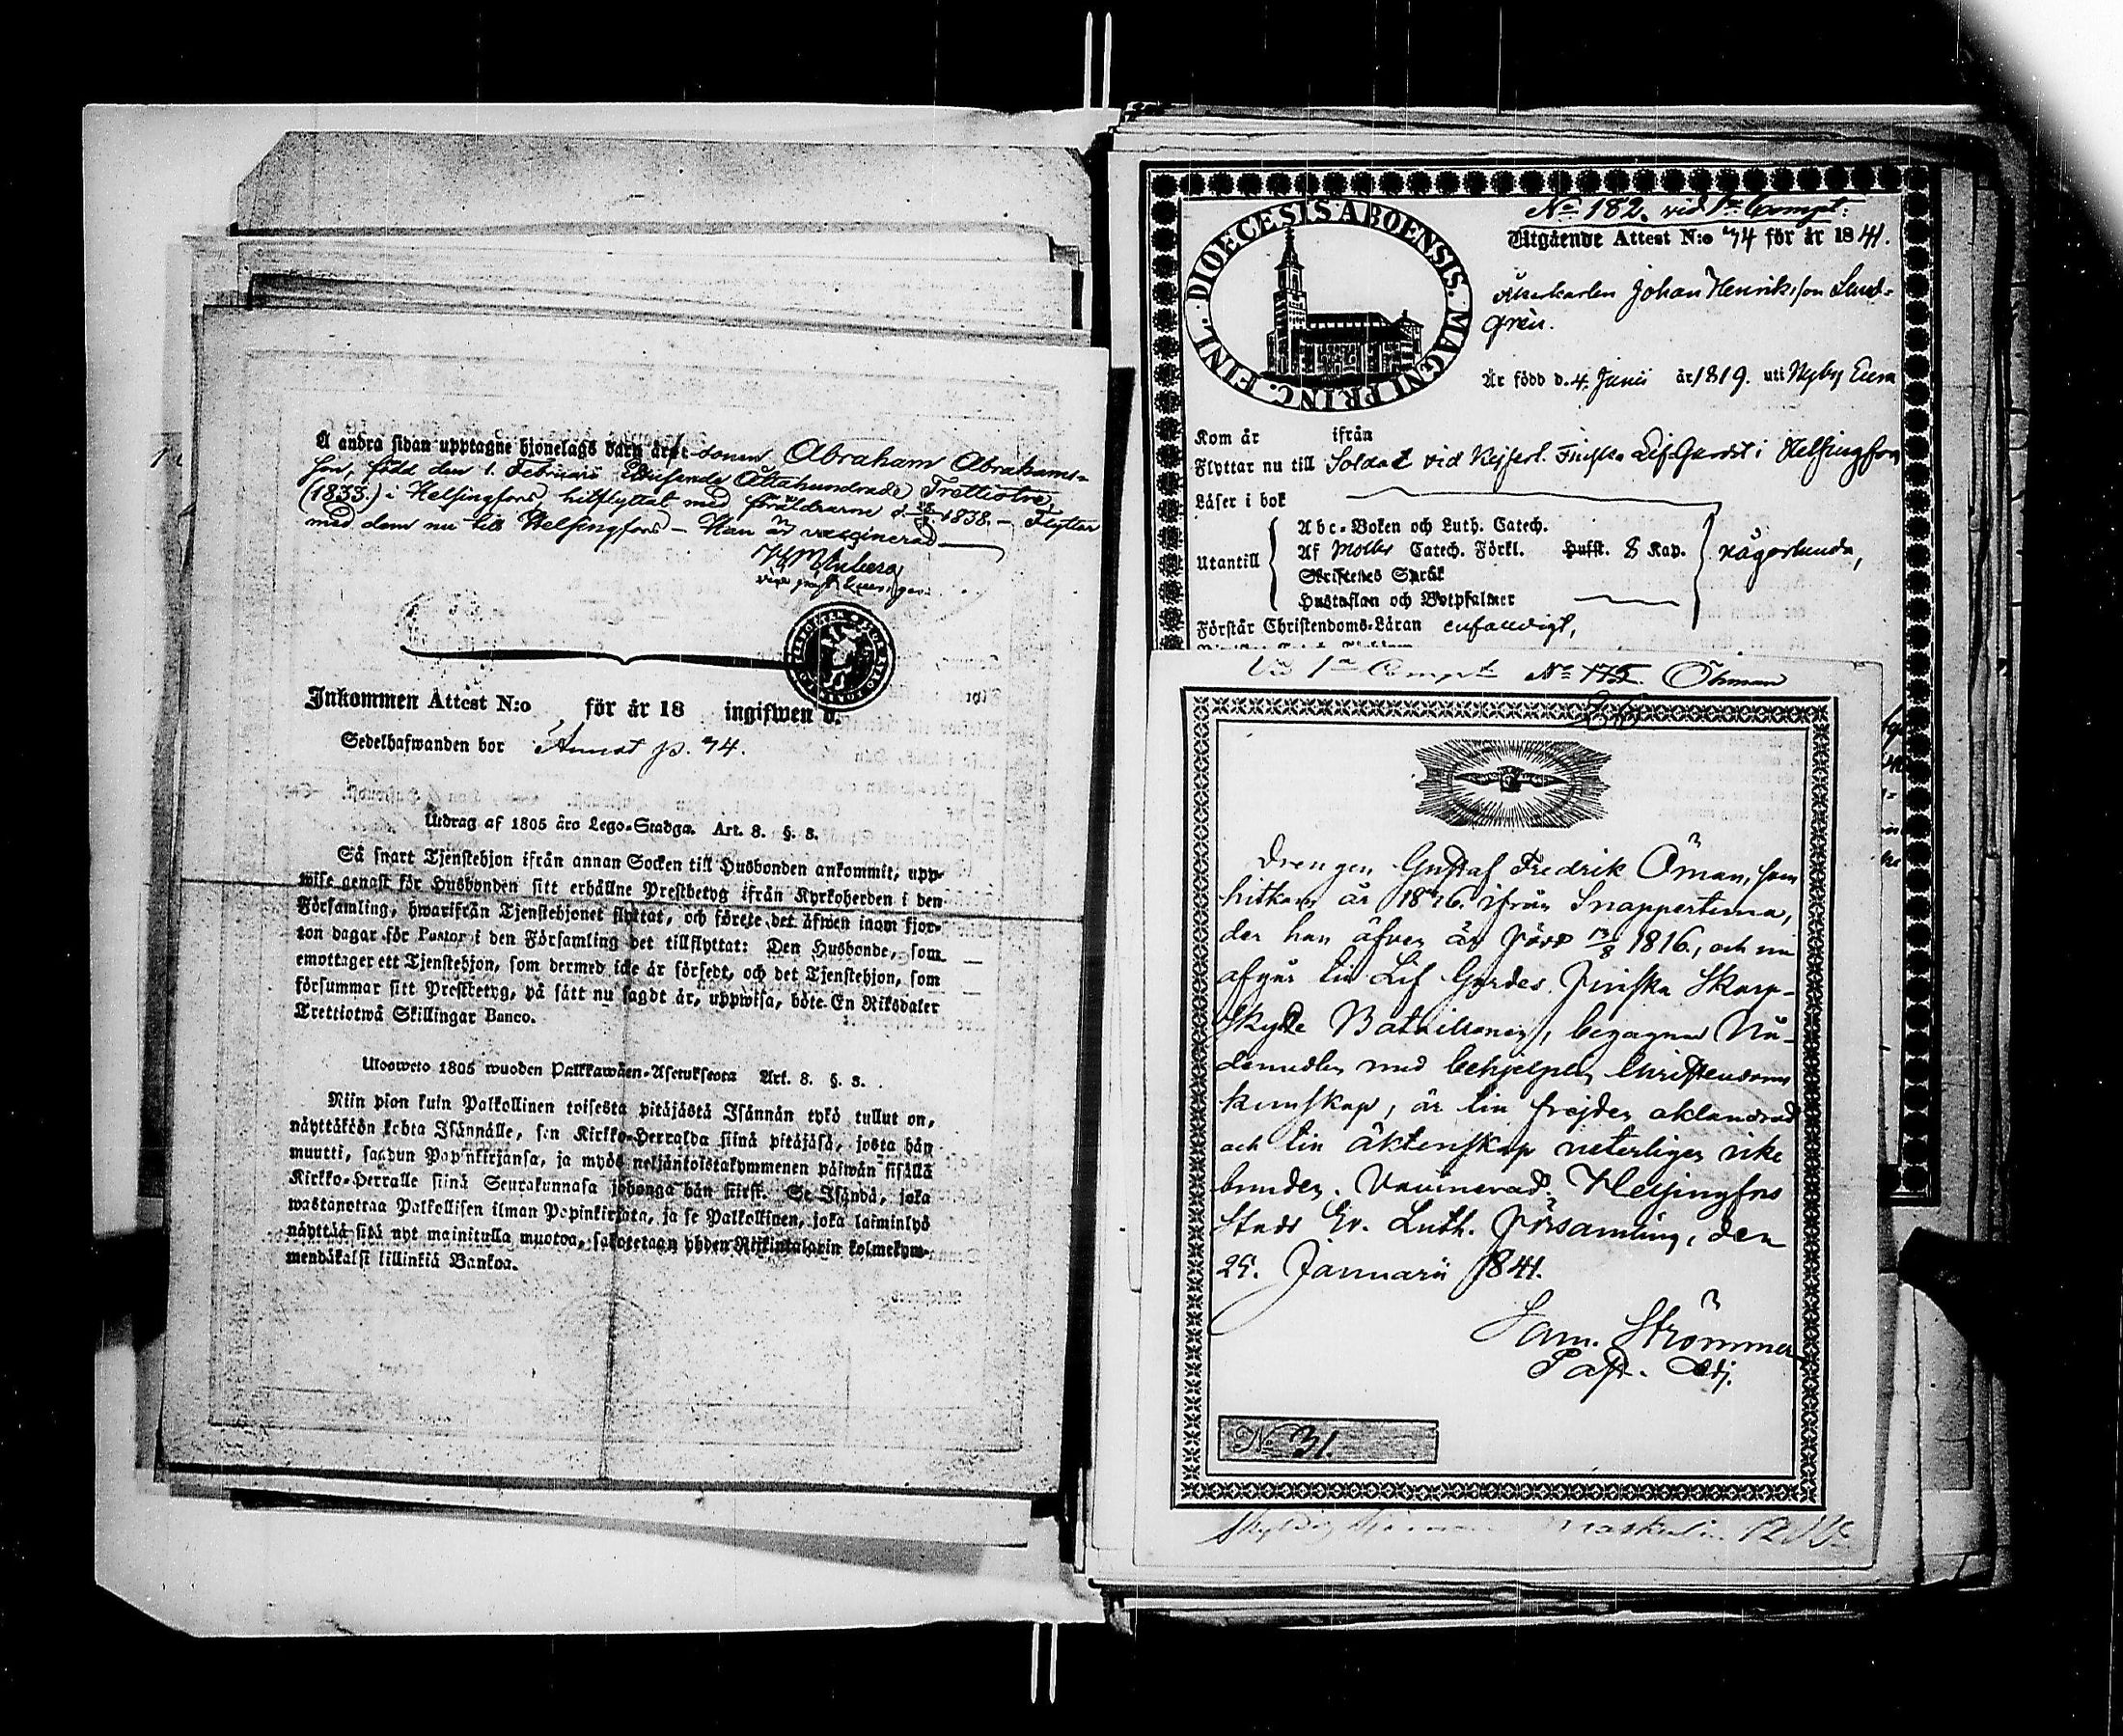 Å andra sidan upptagne hjonelags barn är: sonen Abraham Abrahams-
son, född den 1. Februarii Ettusende Åttahundrade Trettiotre,
(1833.) i Helsingfors, hitflyttat med föräldrarne d. 1838. – Flyttar
med dem nu till Helsingfors – Han är vaccinerad
Inkommen Attest N:o för år 18 ingifwen d.
Sedelhafwanden bor p. 74.
Utdrag af 1805 års Lego-Stadga. Art. 8. §. 3.
Så snart Tjenstehjon ifrån annan Socken till Husbonden ankommit, upp-
wise genast för Husbonden sitt erhållne Prestbetyg ifrån Kyrkoherden i den
Församling, hwarifrån Tjenstehjonet flyttat, och förete det äfwen inom fjor-
ton dagar för Pastor i den Församling det tillflyttat: Den Husbonde, som
emottager ett Tjenstehjon, som dermed icke är försedt, och det Tjenstehjon, som
försummar sitt Prestbetyg, på sätt nu sagdt är, uppwisa, böte En Riksdaler
Trettiotwå Skillingar Banco.
Uloosweto 1805 wuoden Palkkawäen-Asetuksesta Art. 8. §. 3.
Niin pian kuin Palkollinen toisesta pitäjästä Isännän tykö tullut on,
näyttäköön kohta Isännälle, sen Kirkko-Herralda siinä pitäjäsä, josta hän
muutti, saadun Papinkirjansa, ja myös neljäntoistakymmenen päiwän sisällä
Kirkko-Herralle siinä Seurakunnasa johonga hän siirsi. Se Isändä, joka
wastanottaa Palkollisen ilman Papinkirjata, ja se Palkollinen, joka laiminlyö
näyttää sitä nyt mainitulla muotoa, sakotetaan yhden Riikintalarin kolmekym-
mendäkaksi killinkiä Bankoa.
DIOECESIS ABOENSIS. MAGNI PRINC. FINL.
No 182. vid 1:a Compt:
Utgående Attest N:o 74 för år 1841.
Johan Henriksson Lind-
gren.
Är född d. 4. Junii år 1819. uti Nyby Eura
Kom år ifrån
Flyttar nu till Soldat vid Kejserl. Finska Lif-Gardet i Helsingfors
Läser i bok
Utantill
Abc-Boken och Luth. Catech.
Af Möllers Catech. Förkl. Hufst. 8 Kap.
Skriftenes Språk
Hustaflan och Botpsalmer
någorlunda,
Förstår Christendoms-Läran enfaldigt,
Vid 1:a Compt No 175. Öhman
Drengen Gustaf Fredrik Öman, som
hitkom år 1836. ifrån Snappertuna,
der han äfven är född 13/8 1816., och nu
afgår till Lif Gardes Finska Skarp-
skytte Bataillonen, begagnar Nå-
demedlen med behjelplig Christendoms
kunskap, är till frejden oklandrad
och till äktenskap veterligen icke
bunden. Vaccinerad. Helsingfors
Stads Ev. Luth. Församling, den
25. Januarii 1841.
Sam. Strömmer
Past. Adj.
No 31.